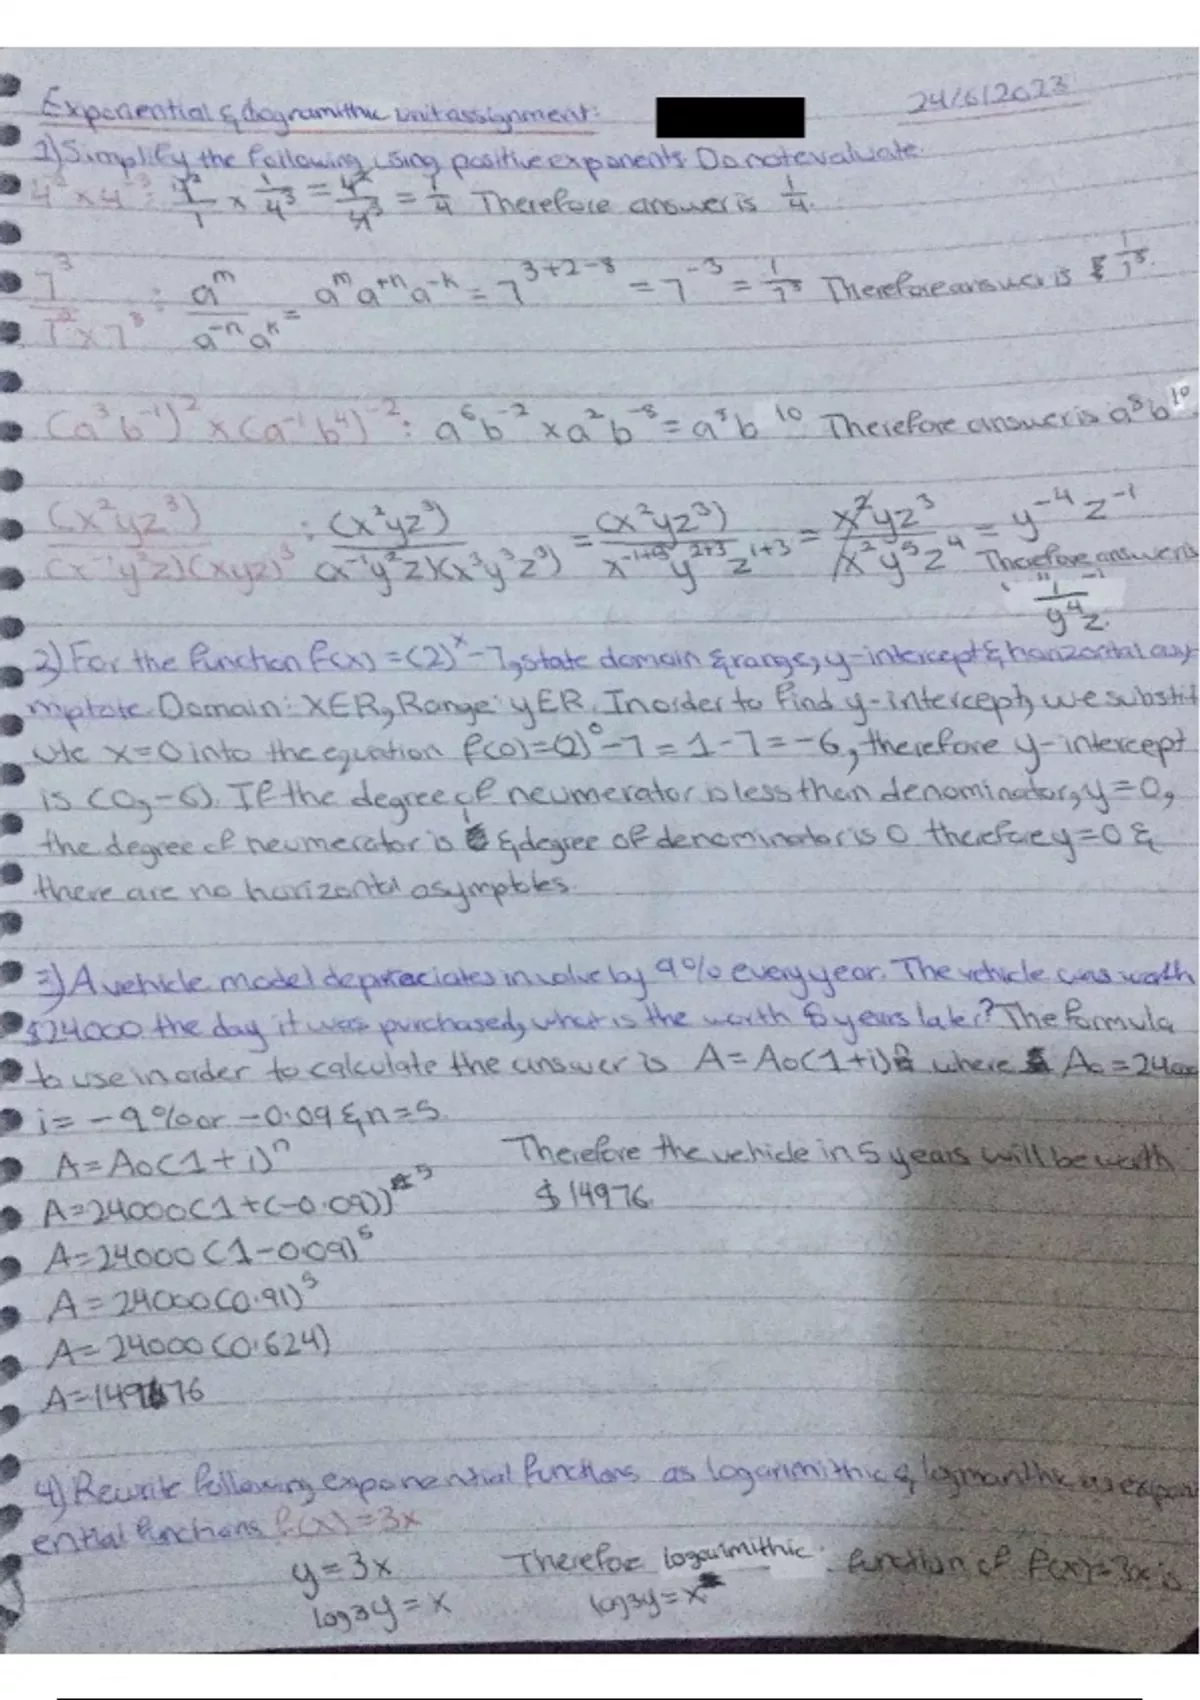 Exponential & Logramithic unit assignment: 24/6/2023
1) Simplify the following using positive exponents. Do not evaluate.
4² × 4⁻³ : 4²/1 × 1/4³ = 4²/4³ = 1/4 Therefore answer is 1/4.
7³/(7⁻² × 7⁸) : aᵐ/(a⁻ⁿ aᵏ) = aᵐ a⁺ⁿ a⁻ᵏ = 7³⁺²⁻⁸ = 7⁻³ = Therefore answer is
(a³b⁻¹)² × (a⁻¹b⁴)⁻² : a⁶b⁻² × a²b⁻⁸ = a⁸b 10 Therefore answer is a⁸b¹⁰
(x²yz³)/(x⁻¹y²z)(xyz)³ : (x²yz³)/(x⁻¹y²z)(x³y³z³) = (x²yz³)/x⁻¹⁺³y²⁺³z¹⁺³ = x²yz³/x²y⁵z⁴ = y⁻⁴z⁻¹
Therefore answer is
1/y⁴z.
2) For the function f(x) = (2)ˣ - 7, state domain & range, y-intercept & horizontal asy
mptote. Domain: XER, Range: yER. Inorder to find y-intercept, we substit
ute x=0 into the equation f(0)=(2)⁰-7=1-7=-6, therefore y-intercept
is (0,-6). If the degree of neumerator is less than denominator, y=0,
the degree of neumerator is 1 & degree of denominator is 0 therefore y=0 &
there are no horizontal asymptotes.
3) A vehicle model depreciates in value by 9% every year. The vehicle was worth
$24000 the day it was purchased, what is the worth 5 years later? The formula
to use in order to calculate the answer is A=A₀(1+i)ⁿ where A₀=24000
i=-9% or -0.09 & n=5.
A=A₀(1+i)ⁿ Therefore the vehicle in 5 years will be worth
A=24000(1+(-0.09))⁵ $14976.
A=24000(1-0.09)⁵
A=24000(0.91)⁵
A=24000(0.624)
A=14976
4) Rewrite following exponential functions as logarimithic & exponential
ential functions f(x)=3x
y=3x Therefore logarimithic function of f(x)=3x is
log3y=x log3y=x